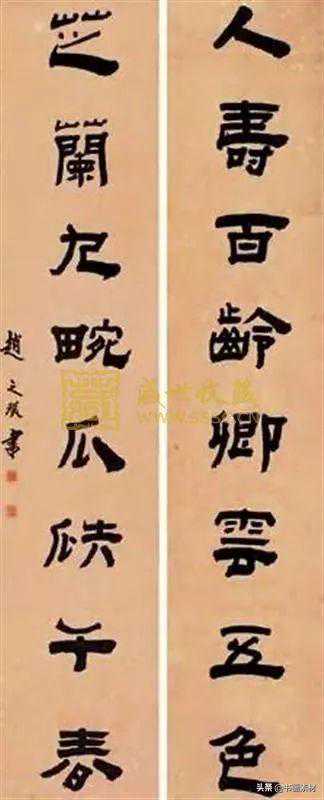 人壽百齡卿雲五色
芝蘭九畹瓜瓞千春
趙之琛書
盛世收藏
WWW.SSSC.CN
头条@书画素材